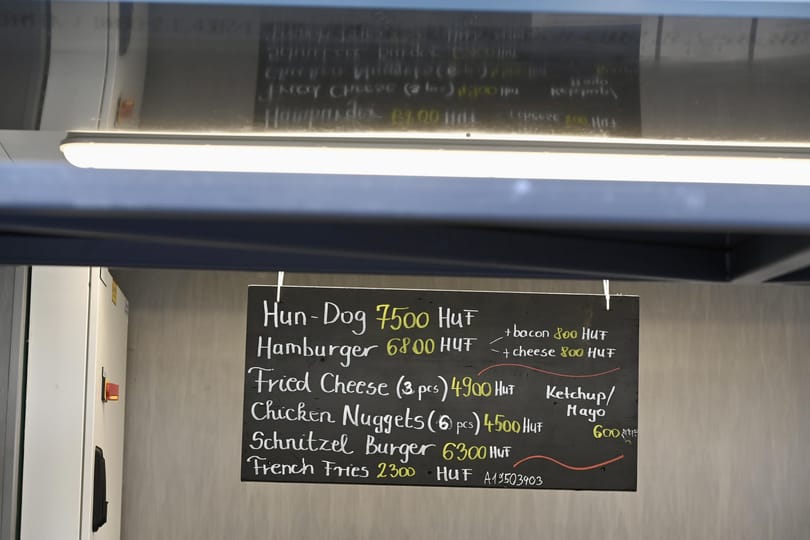 Hun-Dog 7500 HUF
Hamburger 6800 HUF
+bacon 800 HUF
+cheese 800 HUF
Fried Cheese (3 pcs) 4900 HUF
Chicken Nuggets (6 pcs) 4500 HUF
Ketchup/
Mayo
600
Schnitzel Burger 6300 HUF
French Fries 2300 HUF